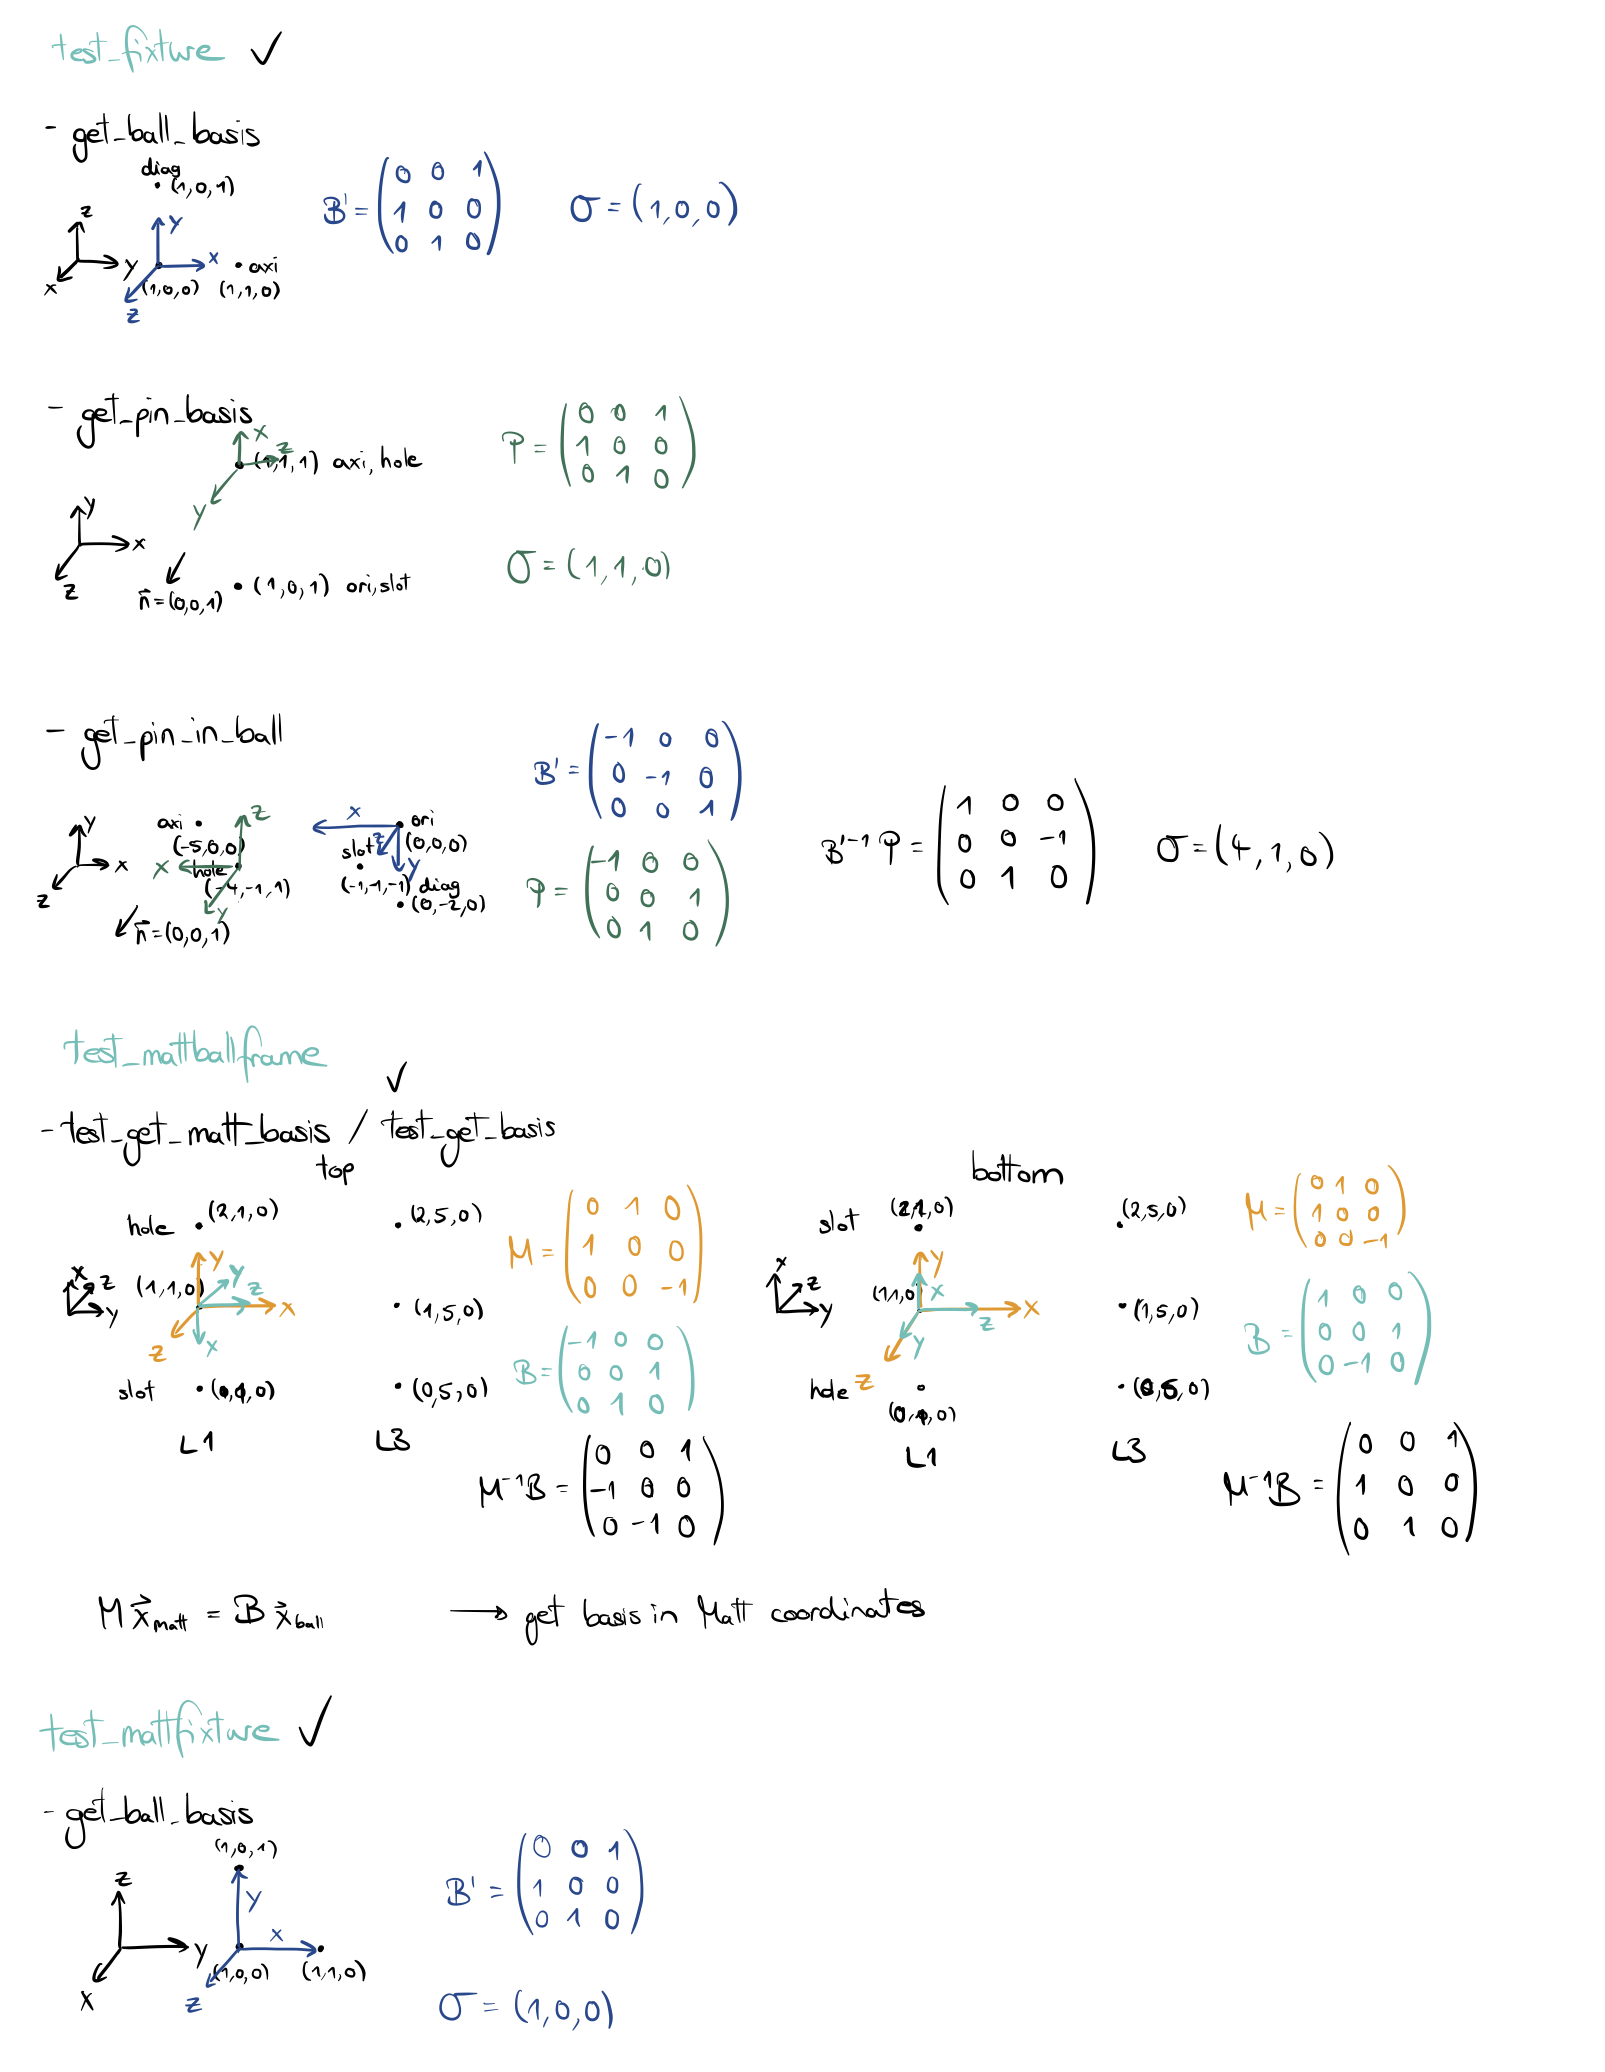 test_fixture ✓
- get_ball_basis
diag
(1,0,1)
z
y
x
y
x
z
(1,0,0)
axi
(1,1,0)
B' = ( 0 0 1
1 0 0
0 1 0 )
σ = (1,0,0)
- get_pin_basis
x
z
y
(1,1,1) axi, hole
y
x
z
n⃗ = (0,0,1)
(1,0,1) ori, slot
P = ( 0 0 1
1 0 0
0 1 0 )
σ = (1,1,0)
- get_pin_in_ball
y
x
z
axi
(-5,0,0)
z
x
hole
(-4,-1,1)
y
n⃗ = (0,0,1)
x
ori
(0,0,0)
z
slot
y
(-1,-1,-1)
diag
(0,-2,0)
B' = ( -1 0 0
0 -1 0
0 0 1 )
P = ( -1 0 0
0 0 1
0 1 0 )
B'⁻¹ P = ( 1 0 0
0 0 -1
0 1 0 )
σ = (4,1,0)
test_mattballframe
✓
- test_get_matt_basis / test_get_basis
top
hole (2,1,0)
(2,5,0)
x z
y
(1,1,0)
y
y
z
x
z
x
(1,5,0)
slot
(0,5,0)
L1
L3
M = ( 0 1 0
1 0 0
0 0 -1 )
B = ( -1 0 0
0 0 1
0 1 0 )
M⁻¹B = ( 0 0 1
-1 0 0
0 -1 0 )
bottom
slot
(2,5,0)
x
z
y
(1,1,0)
y
x
x
z
y
z
(1,5,0)
hole
L1
L3
M = ( 0 1 0
1 0 0
0 0 -1 )
B = ( 1 0 0
0 0 1
0 -1 0 )
M⁻¹B = ( 0 0 1
1 0 0
0 1 0 )
M x⃗matt = B x⃗ball ⟶ get basis in Matt coordinates
test_mattfixture ✓
- get_ball_basis
(1,0,1)
z
y
x
y
x
(1,0,0)
(1,1,0)
z
B' = ( 0 0 1
1 0 0
0 1 0 )
σ = (1,0,0)